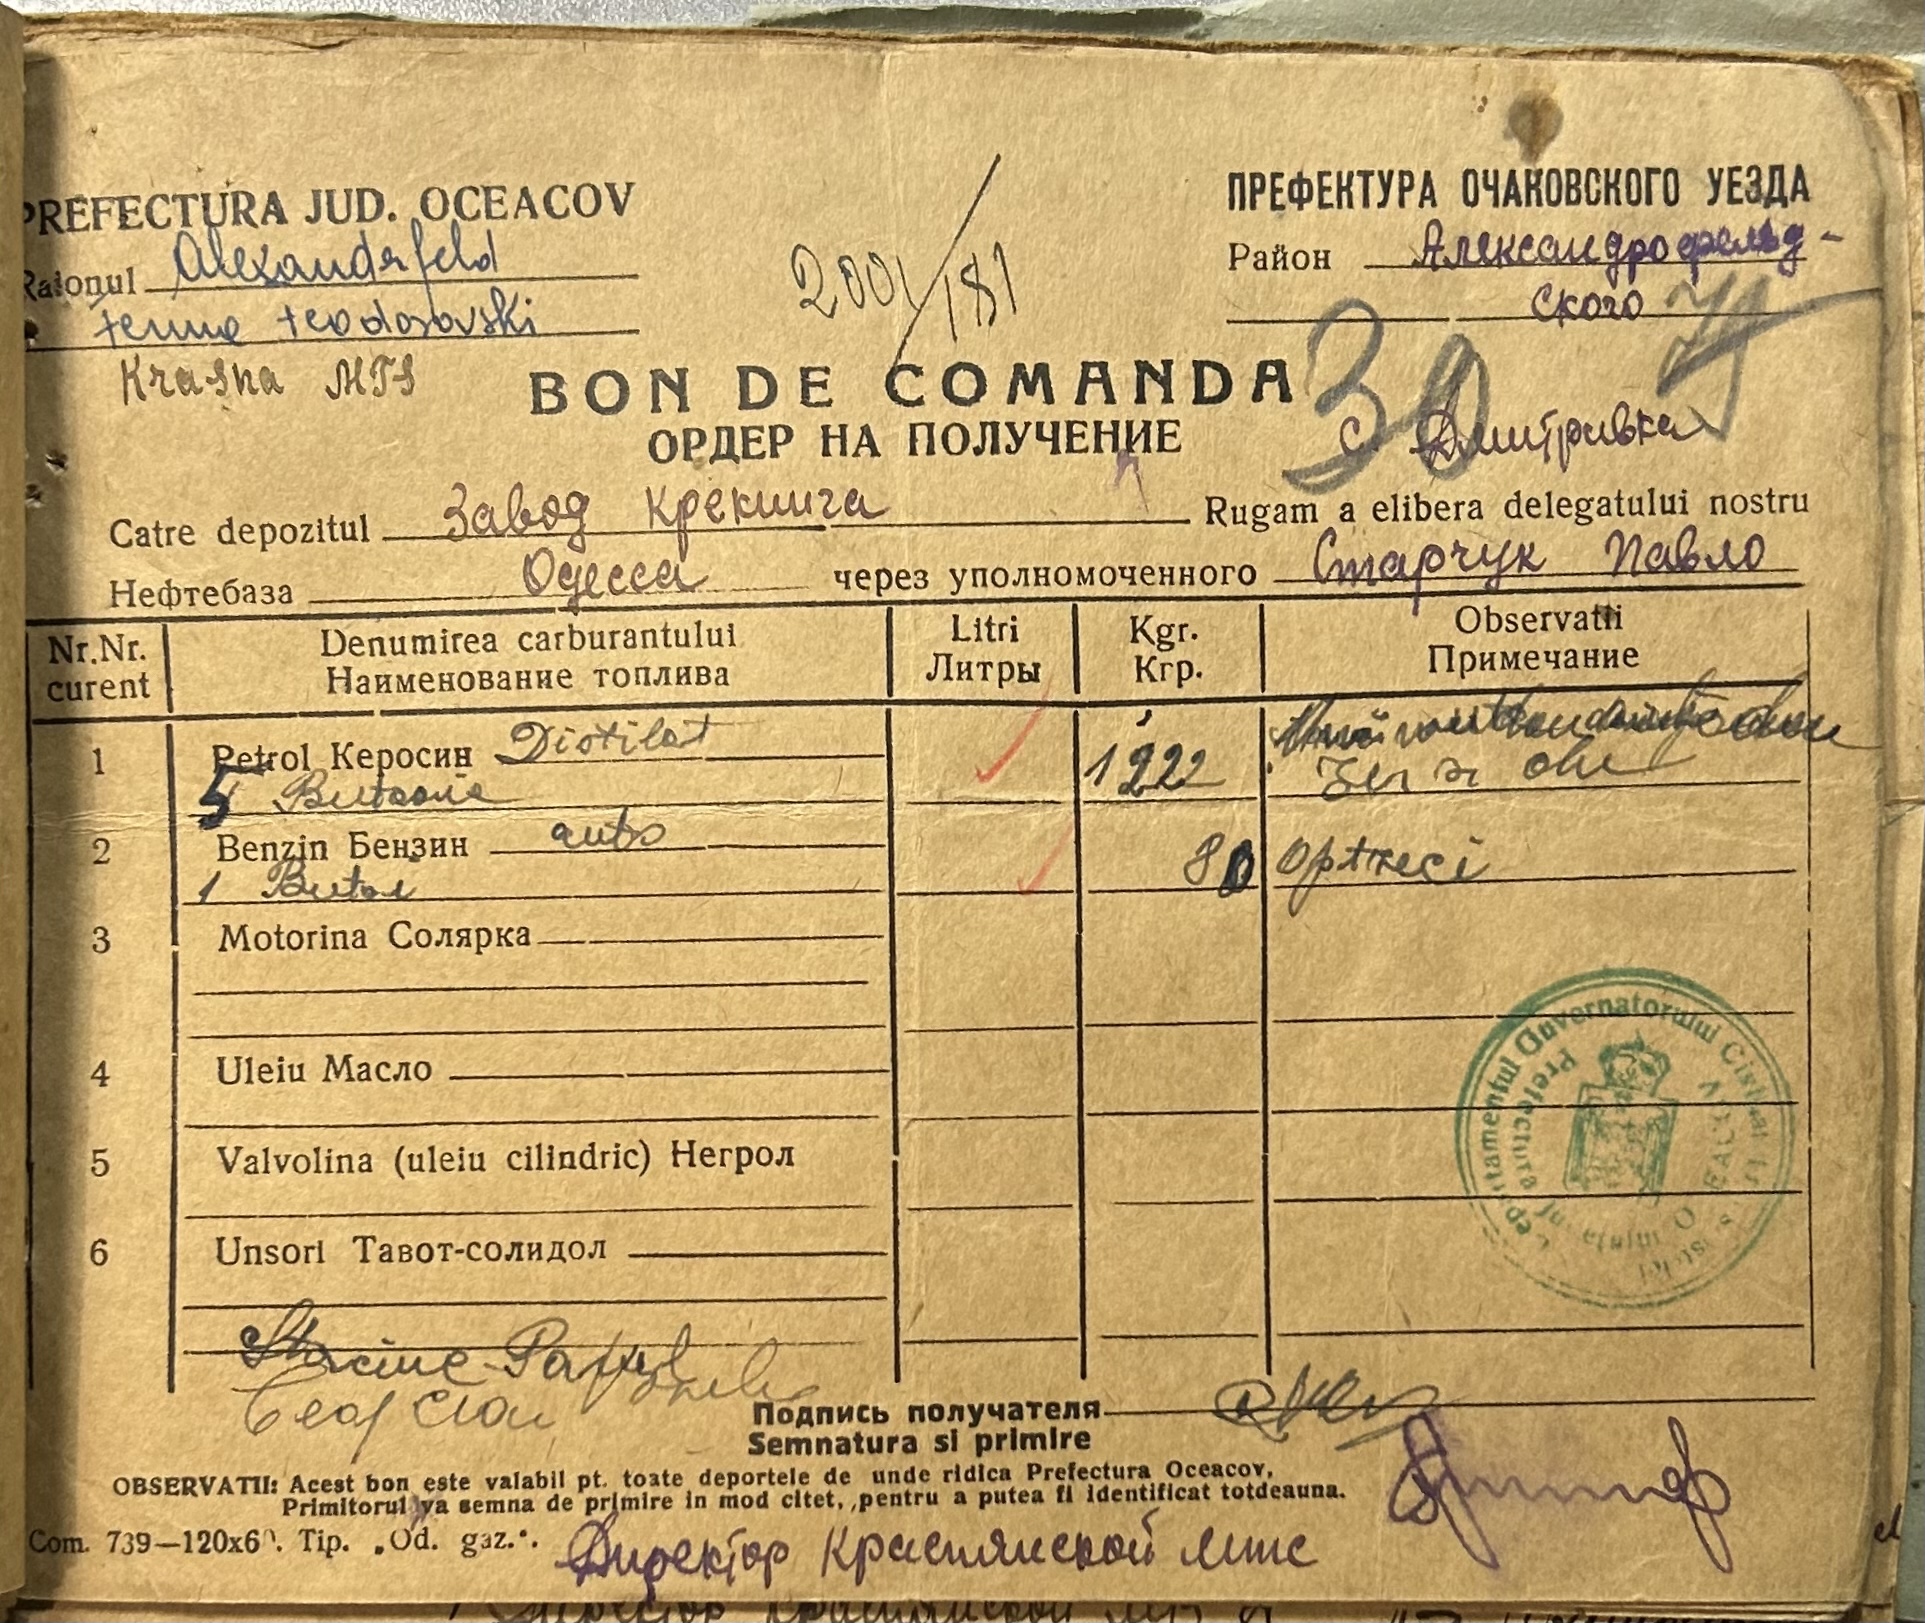 PREFECTURA JUD. OCEACOV
ПРЕФЕКТУРА ОЧАКОВСКОГО УЕЗДА
Raionul Alexanderfeld
Район Александрофельд-
ского
ferma teodosovski
Krasna MTS
200/181
BON DE COMANDA
ОРДЕР НА ПОЛУЧЕНИЕ
с. Дмитривка
Catre depozitul Завод Крекинга Rugam a elibera delegatului nostru
Нефтебаза Одесса через уполномоченного Старчук Павло
Nr.Nr. curent
Denumirea carburantului
Наименование топлива
Litri
Литры
Kgr.
Кгр.
Observatii
Примечание
1 Petrol Керосин Distilat 1222
5 Butoaie
2 Benzin Бензин auto 80 optzeci
1 Butoi
3 Motorina Солярка
4 Uleiu Масло
5 Valvolina (uleiu cilindric) Негрол
6 Unsori Тавот-солидол
Guvernatorului Civil
Prefectura
Подпись получателя
Semnatura si primire
OBSERVATII: Acest bon este valabil pt. toate deportele de unde ridica Prefectura Oceacov,
Primitorul va semna de primire in mod citet, pentru a putea fi identificat totdeauna.
Com. 739—120x60. Tip. „Od. gaz.".
Директор Краснянской мтс